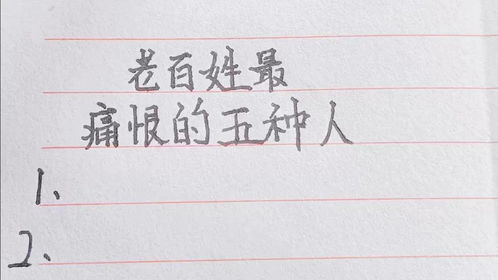 老百姓最
痛恨的五种人
1、
2、